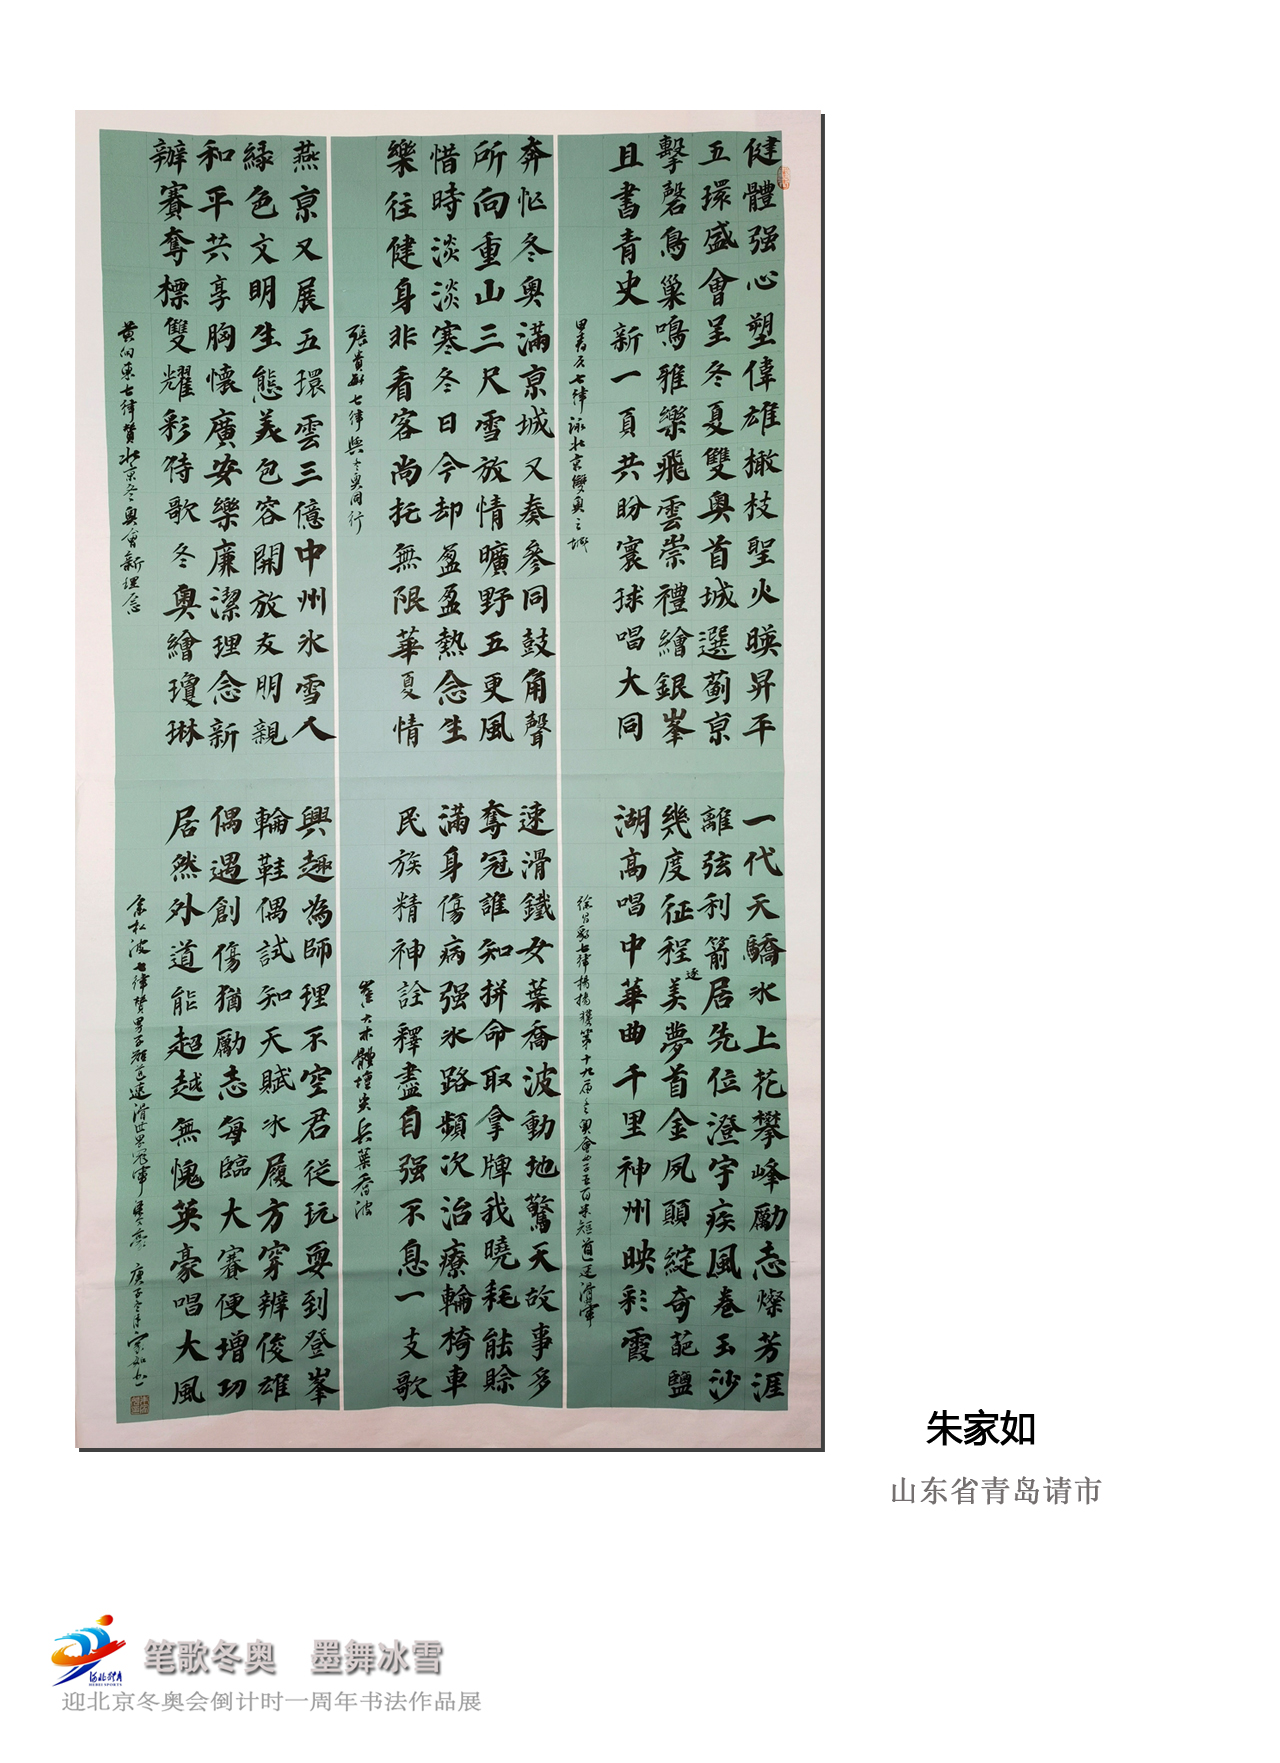 健體强心塑偉雄橄枝聖火暎昇平
五環盛會呈冬夏雙奥首城選薊亰
擊磬鳥巢鳴雅樂飛雲崇禮繪銀峯
且書青史新一頁共盼寰球唱大同
七律詠北京雙奥之城
一代天驕氷上花攀峰勵志燦芳涯
離弦利箭居先位澄宇疾風卷玉沙
幾度征程逐美夢首金夙願綻奇葩鹽
湖高唱中華曲千里神州映彩霞
七律楊揚獲第十九屆冬奥會女子五百米短道速滑冠軍
奔忙冬奥滿亰城又奏參同鼓角聲
所向重山三尺雪放情曠野五更風
惜時淡淡寒冬日今却盈盈熱念生
樂往健身非看客尚托無限華夏情
張貴敏七律與冬奥同行
速滑鐵女葉喬波動地驚天故事多
奪冠誰知拼命取拿牌我曉耗能賒
滿身傷病强氷路頻次治療輪椅車
民族精神詮釋盡自强不息一支歌
崔大木體壇尖兵葉喬波
燕亰又展五環雲三億中州氷雪人
緑色文明生態美包容開放友朋親
和平共享胸懷廣安樂廉潔理念新
辦賽奪標雙耀彩待歌冬奥繪瓊琳
黄向東七律贊北京冬奥會新理念
興趣為師理不空君從玩耍到登峯
輪鞋偶試知天賦氷履方穿辨俊雄
偶遇創傷猶勵志每臨大賽便增功
居然外道能超越無愧英豪唱大風
七律贊男子短道速滑世界冠軍 庚子冬月家如书
朱家如
山东省青岛请市
河北体育
HEBEI SPORTS
笔歌冬奥　墨舞冰雪
迎北京冬奥会倒计时一周年书法作品展